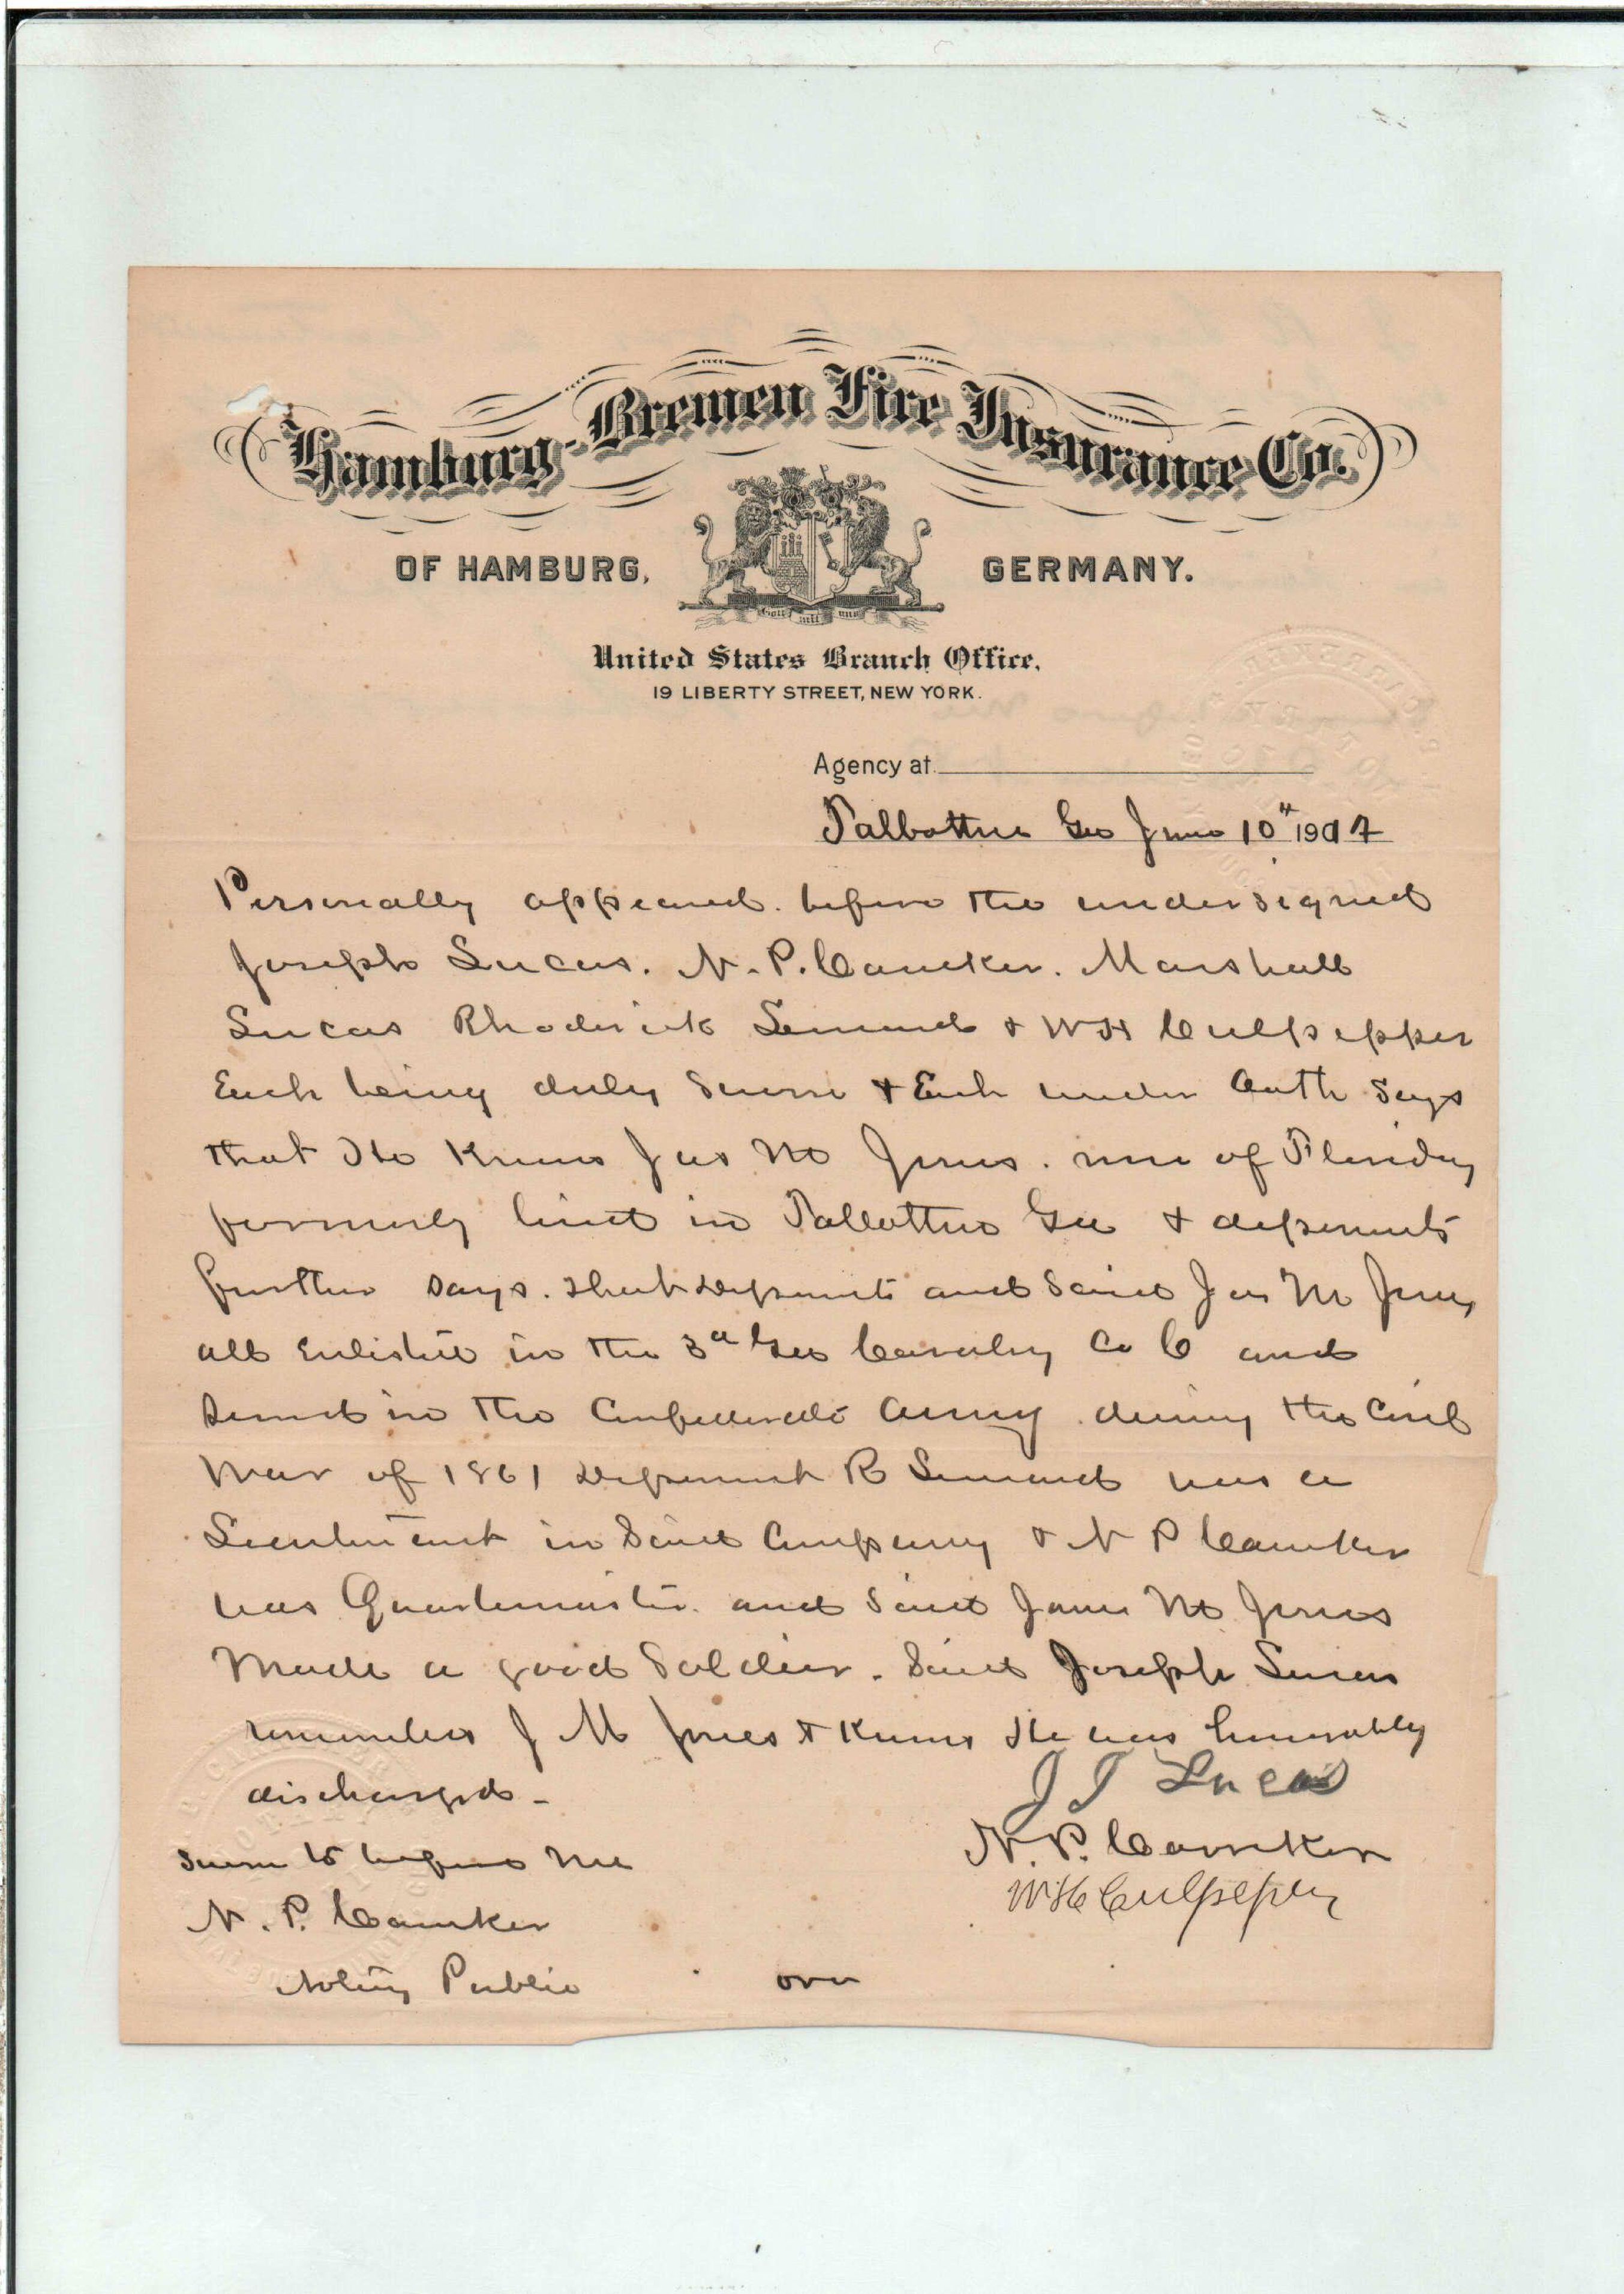 Hamburg-Bremen Fire Insurance Co.
OF HAMBURG, GERMANY.
Gott mit uns
United States Branch Office,
19 LIBERTY STREET, NEW YORK.
Agency at
Talbotton Geo June 10th 1907
Personally appeared before the undersigned
Joseph Lucas. N. P. Carreker. Marshall
Lucas Rhoderick Leonard & W H Culpepper
Each being duly sworn & Each under Oath says
that He knows Jas M Jones. now of Florida
formerly lived in Talbotton Geo & deponents
further says. that deponents and said Jas M Jones
all Enlisted in the 3d Geo Cavalry Co C and
served in the Confederate Army during the Civil
War of 1861 Deponent R Leonard was a
Lieutenant in said Company & N P Carreker
was Quartermaster and said James M Jones
Made a good Soldier. Said Joseph Lucas
remembers J M Jones & knows He was honorably
discharged -
J T Lucas
Sworn to before me
N. P. Carreker
N. P. Carreker
W H Culpepper
Notary Public
over